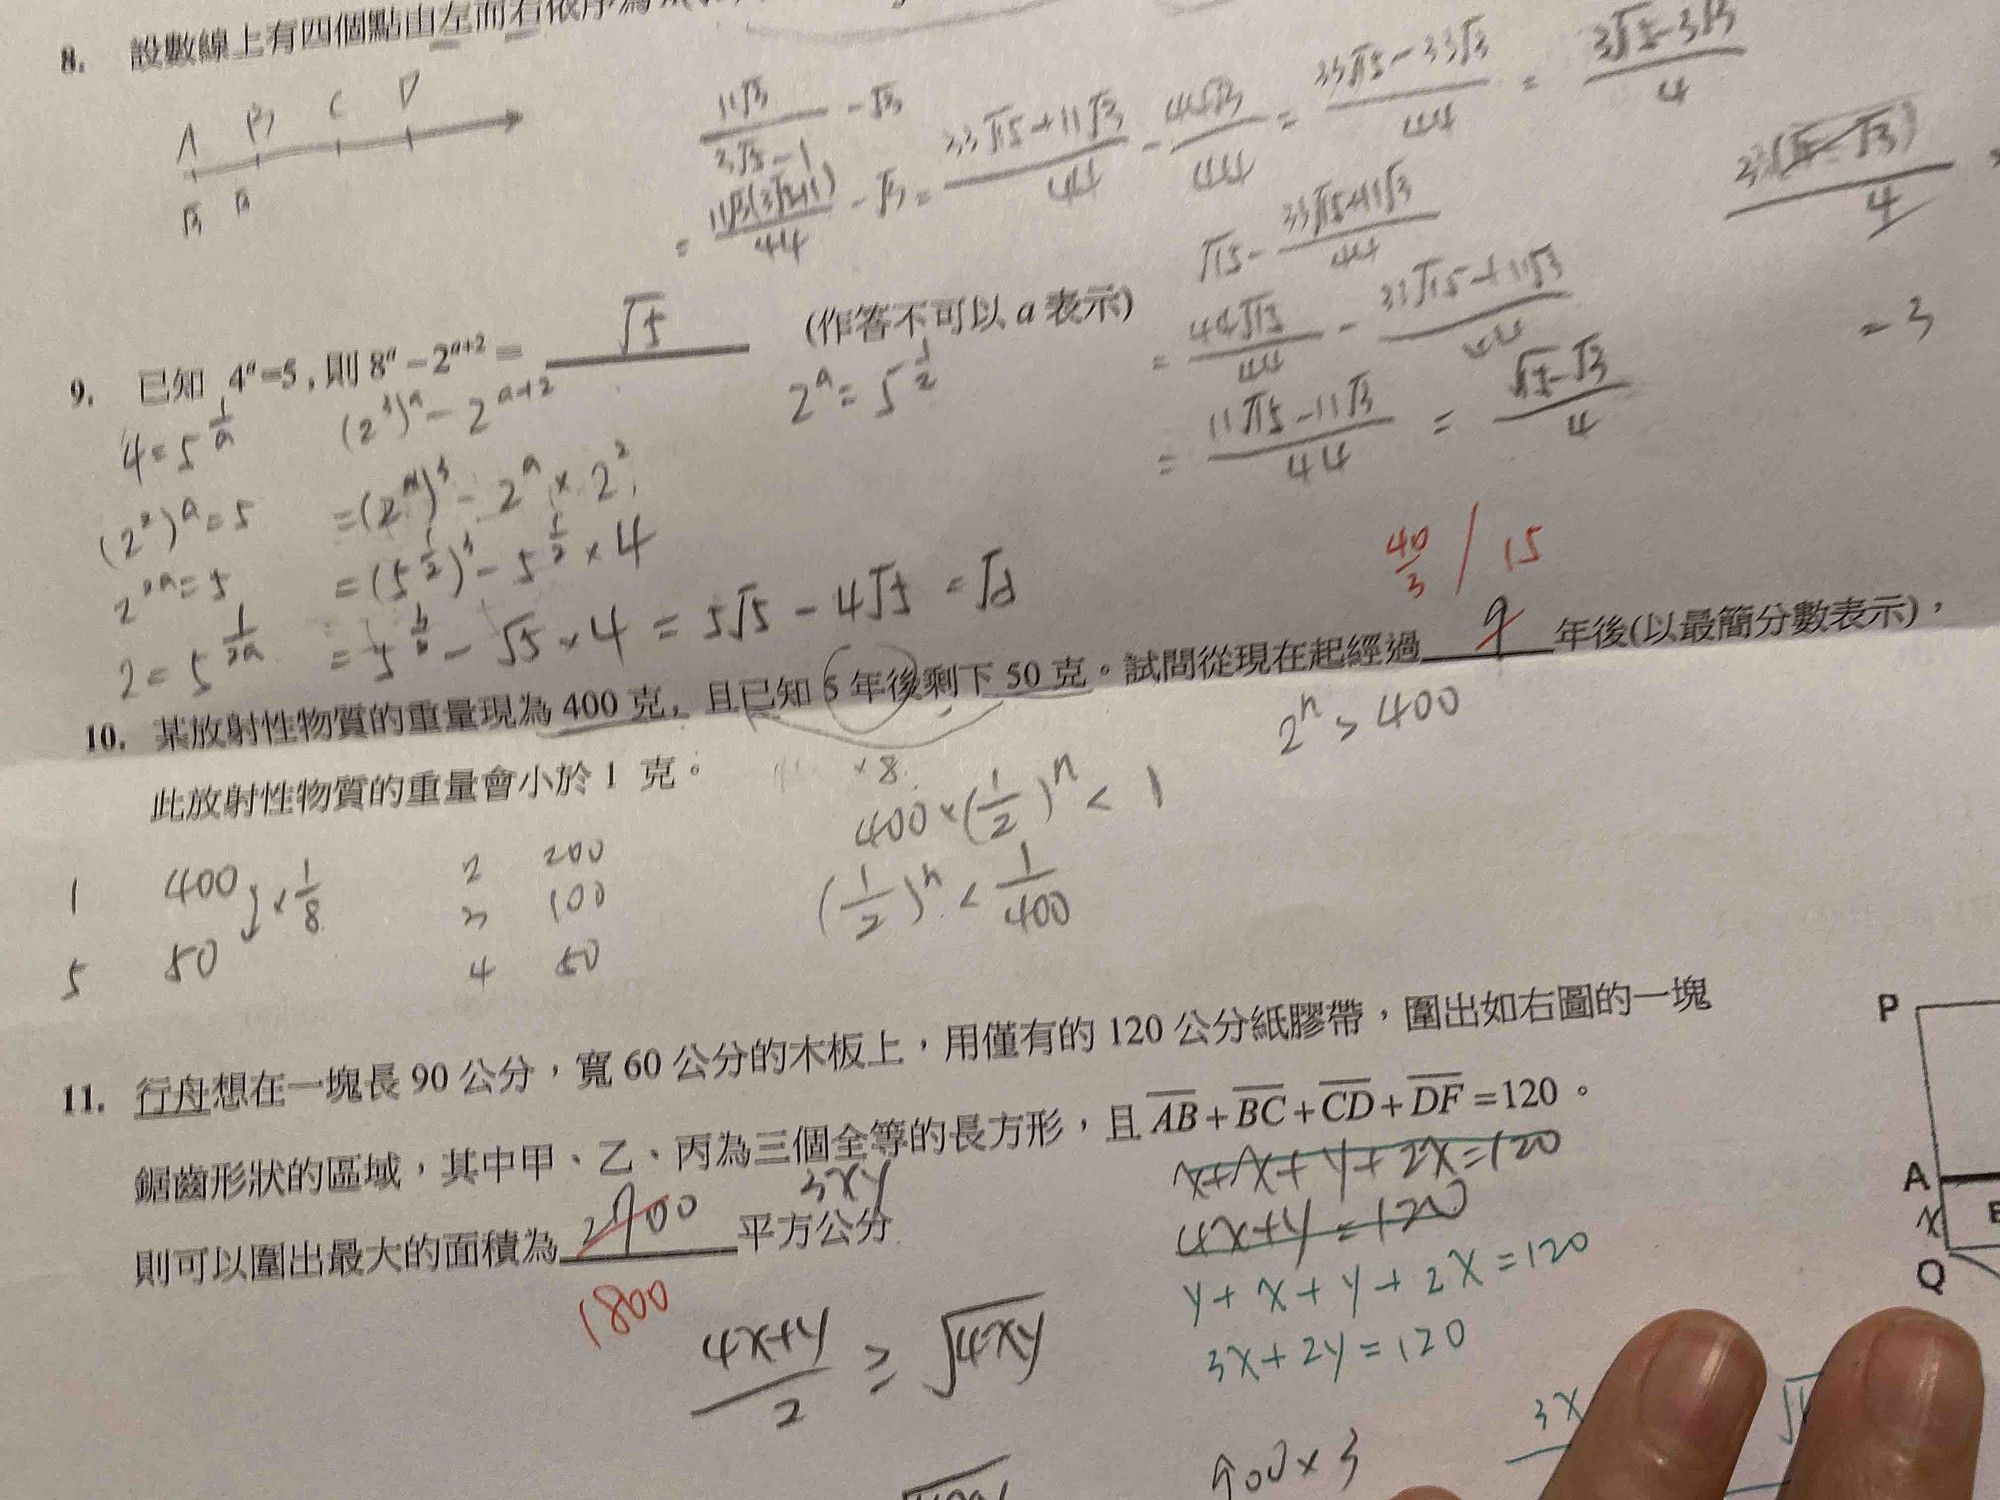 8. 設數線上有四個點由左而右依序為
A B C D
√3
11√3/(3√5-1) - √3
= 11√3(3√5+1)/44 - √3 = (33√15+11√3)/44 - 44√3/44 = (33√15-33√3)/44 = (3√15-3√3)/4
√15 - (33√15+11√3)/44
= 44√15/44 - (33√15+11√3)/44
= (11√15-11√3)/44 = (√15-√3)/4
= 3
9. 已知 4^a=5,則 8^a-2^(a+2)= √5 (作答不可以 a 表示)
4=5^(1/a) (2^3)^a-2^(a+2) 2^a=5^(1/2)
(2^2)^a=5 =(2^a)^3-2^a×2^2
2^(2a)=5 =(5^(1/2))^3-5^(1/2)×4
2=5^(1/2a) =5^(3/2)-√5×4=5√5-4√5=√5
40/3 / 15
10. 某放射性物質的重量現為 400 克,且已知 5 年後剩下 50 克。試問從現在起經過 9 年後(以最簡分數表示),
此放射性物質的重量會小於 1 克。
×8
2^n > 400
400×(1/2)^n < 1
(1/2)^n < 1/400
1 400 ×1/8 2 200
3 100
5 50 4 50
11. 行舟想在一塊長 90 公分,寬 60 公分的木板上,用僅有的 120 公分紙膠帶,圍出如右圖的一塊
鋸齒形狀的區域,其中甲、乙、丙為三個全等的長方形,且 AB+BC+CD+DF=120。
則可以圍出最大的面積為 2700 平方公分
3xy
1800
x+x+y+2x=120
4x+y=120
y+x+y+2x=120
3x+2y=120
(4x+y)/2 ≥ √4xy
900×3
3x
P
A
x
Q